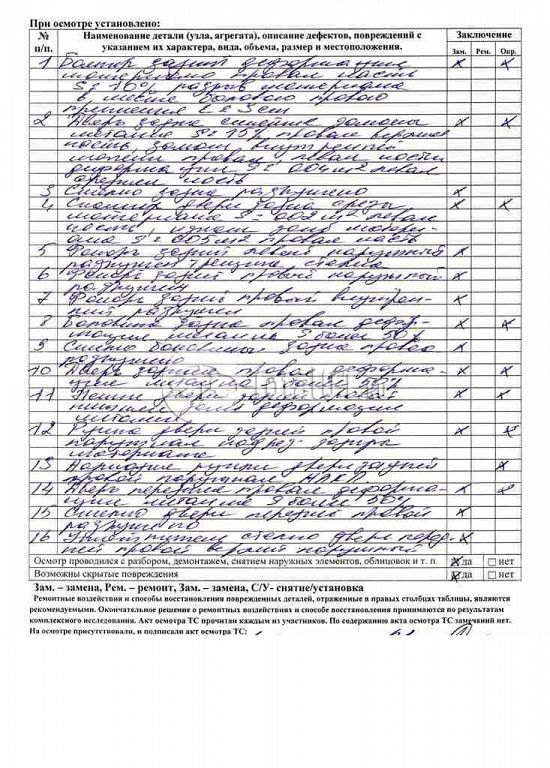 При осмотре установлено:
№ п/п. Наименование детали (узла, агрегата), описание дефектов, повреждений с указанием их характера, вида, объема, размер и местоположения. Заключение
Зам. Рем. Окр.
1 Бампер задний деформация х х
материала правая часть
S= 10% разрыв материала
в месте бокового правого
2 Дверь задка х х
металла S= 15% правая верхняя
часть, заломы внутренней
панели правая, левая части
деформация S= 004 м² левая
средняя часть
3 Стекло задка разрушено х
4 Спойлер двери задка срезы х х
материала S= 002 м² левая
часть, излом
S= 005 м² правая часть
5 Фонарь задний левый наружный х
разрушен трещина стекла
6 Фонарь задний правый наружный х
разрушен
7 Фонарь задний правый внутрен- х
ний разрушен
8 Боковина задка правая дефор- х х
мация металла более 50%
9 Стекло боковины задка правое х
разрушено
10 Дверь задняя правая деформа- х х
ция металла более 50%
11 двери задней правой х х
деформация
металла
12 Ручка двери задней правой х х
наружная задиры
материала
13 двери задней х
правой наружная
14 Дверь передняя правая деформа- х
ция металла более 50%
15 Стекло двери передней правой х
разрушено
16 Уплотнитель стекла двери перед- х
ней правой верхний наружный
Осмотр проводился с разбором, демонтажем, снятием наружных элементов, облицовок и т. п. да нет
Возможны скрытые повреждения да нет
Зам. – замена, Рем. – ремонт, Зам. – замена, С/У- снятие/установка
Ремонтные воздействия и способы восстановления поврежденных деталей, отраженные в правых столбцах таблицы, являются
рекомендуемыми. Окончательное решение о ремонтных воздействиях и способе восстановления принимаются по результатам
комплексного исследования. Акт осмотра ТС прочитан каждым из участников. По содержанию акта осмотра ТС замечаний нет.
На осмотре присутствовали, и подписали акт осмотра ТС: